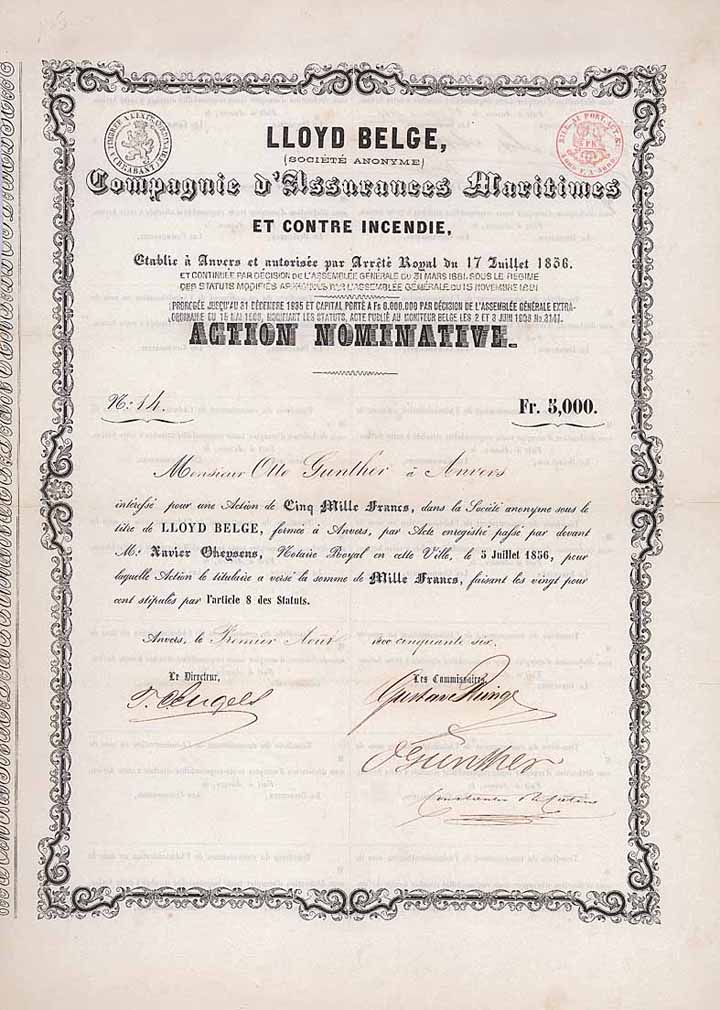 LLOYD BELGE,
(SOCIÉTÉ ANONYME)
Compagnie d'Assurances Maritimes
ET CONTRE INCENDIE,
Etablie à Anvers et autorisée par Arrêté Royal du 17 Juillet 1856.
ET CONTINUÉE PAR DÉCISION DE L'ASSEMBLÉE GÉNÉRALE DU 31 MARS 1881, SOUS LE RÉGIME
DES STATUTS MODIFIÉS APPROUVÉS PAR L'ASSEMBLÉE GÉNÉRALE DU 15 NOVEMBRE 1881
PROROGÉE JUSQU'AU 31 DÉCEMBRE 1935 ET CAPITAL PORTÉ A Fs 6.000.000 PAR DÉCISION DE L'ASSEMBLÉE GÉNÉRALE EXTRA-
ORDINAIRE DU 15 MAI LES STATUTS, ACTE PUBLIÉ AU MONITEUR BELGE LES 2 ET 3 JUIN
ACTION NOMINATIVE.
No: 14.
Fr. 5,000.
Monsieur Otto Gunther à Anvers
intéressé pour une Action de Cinq Mille Francs, dans la Société anonyme sous le
titre de LLOYD BELGE, formée à Anvers, par Acte enregistré passé par devant
Me Xavier Gheysens, Notaire Royal en cette Ville, le 5 Juillet 1856, pour
laquelle Action le titulaire a versé la somme de Mille Francs, faisant les vingt pour
cent stipulés par l'article 8 des Statuts.
Anvers, le Premier Août 1800 cinquante six.
Le Directeur,
Les Commissaires,
OGunther